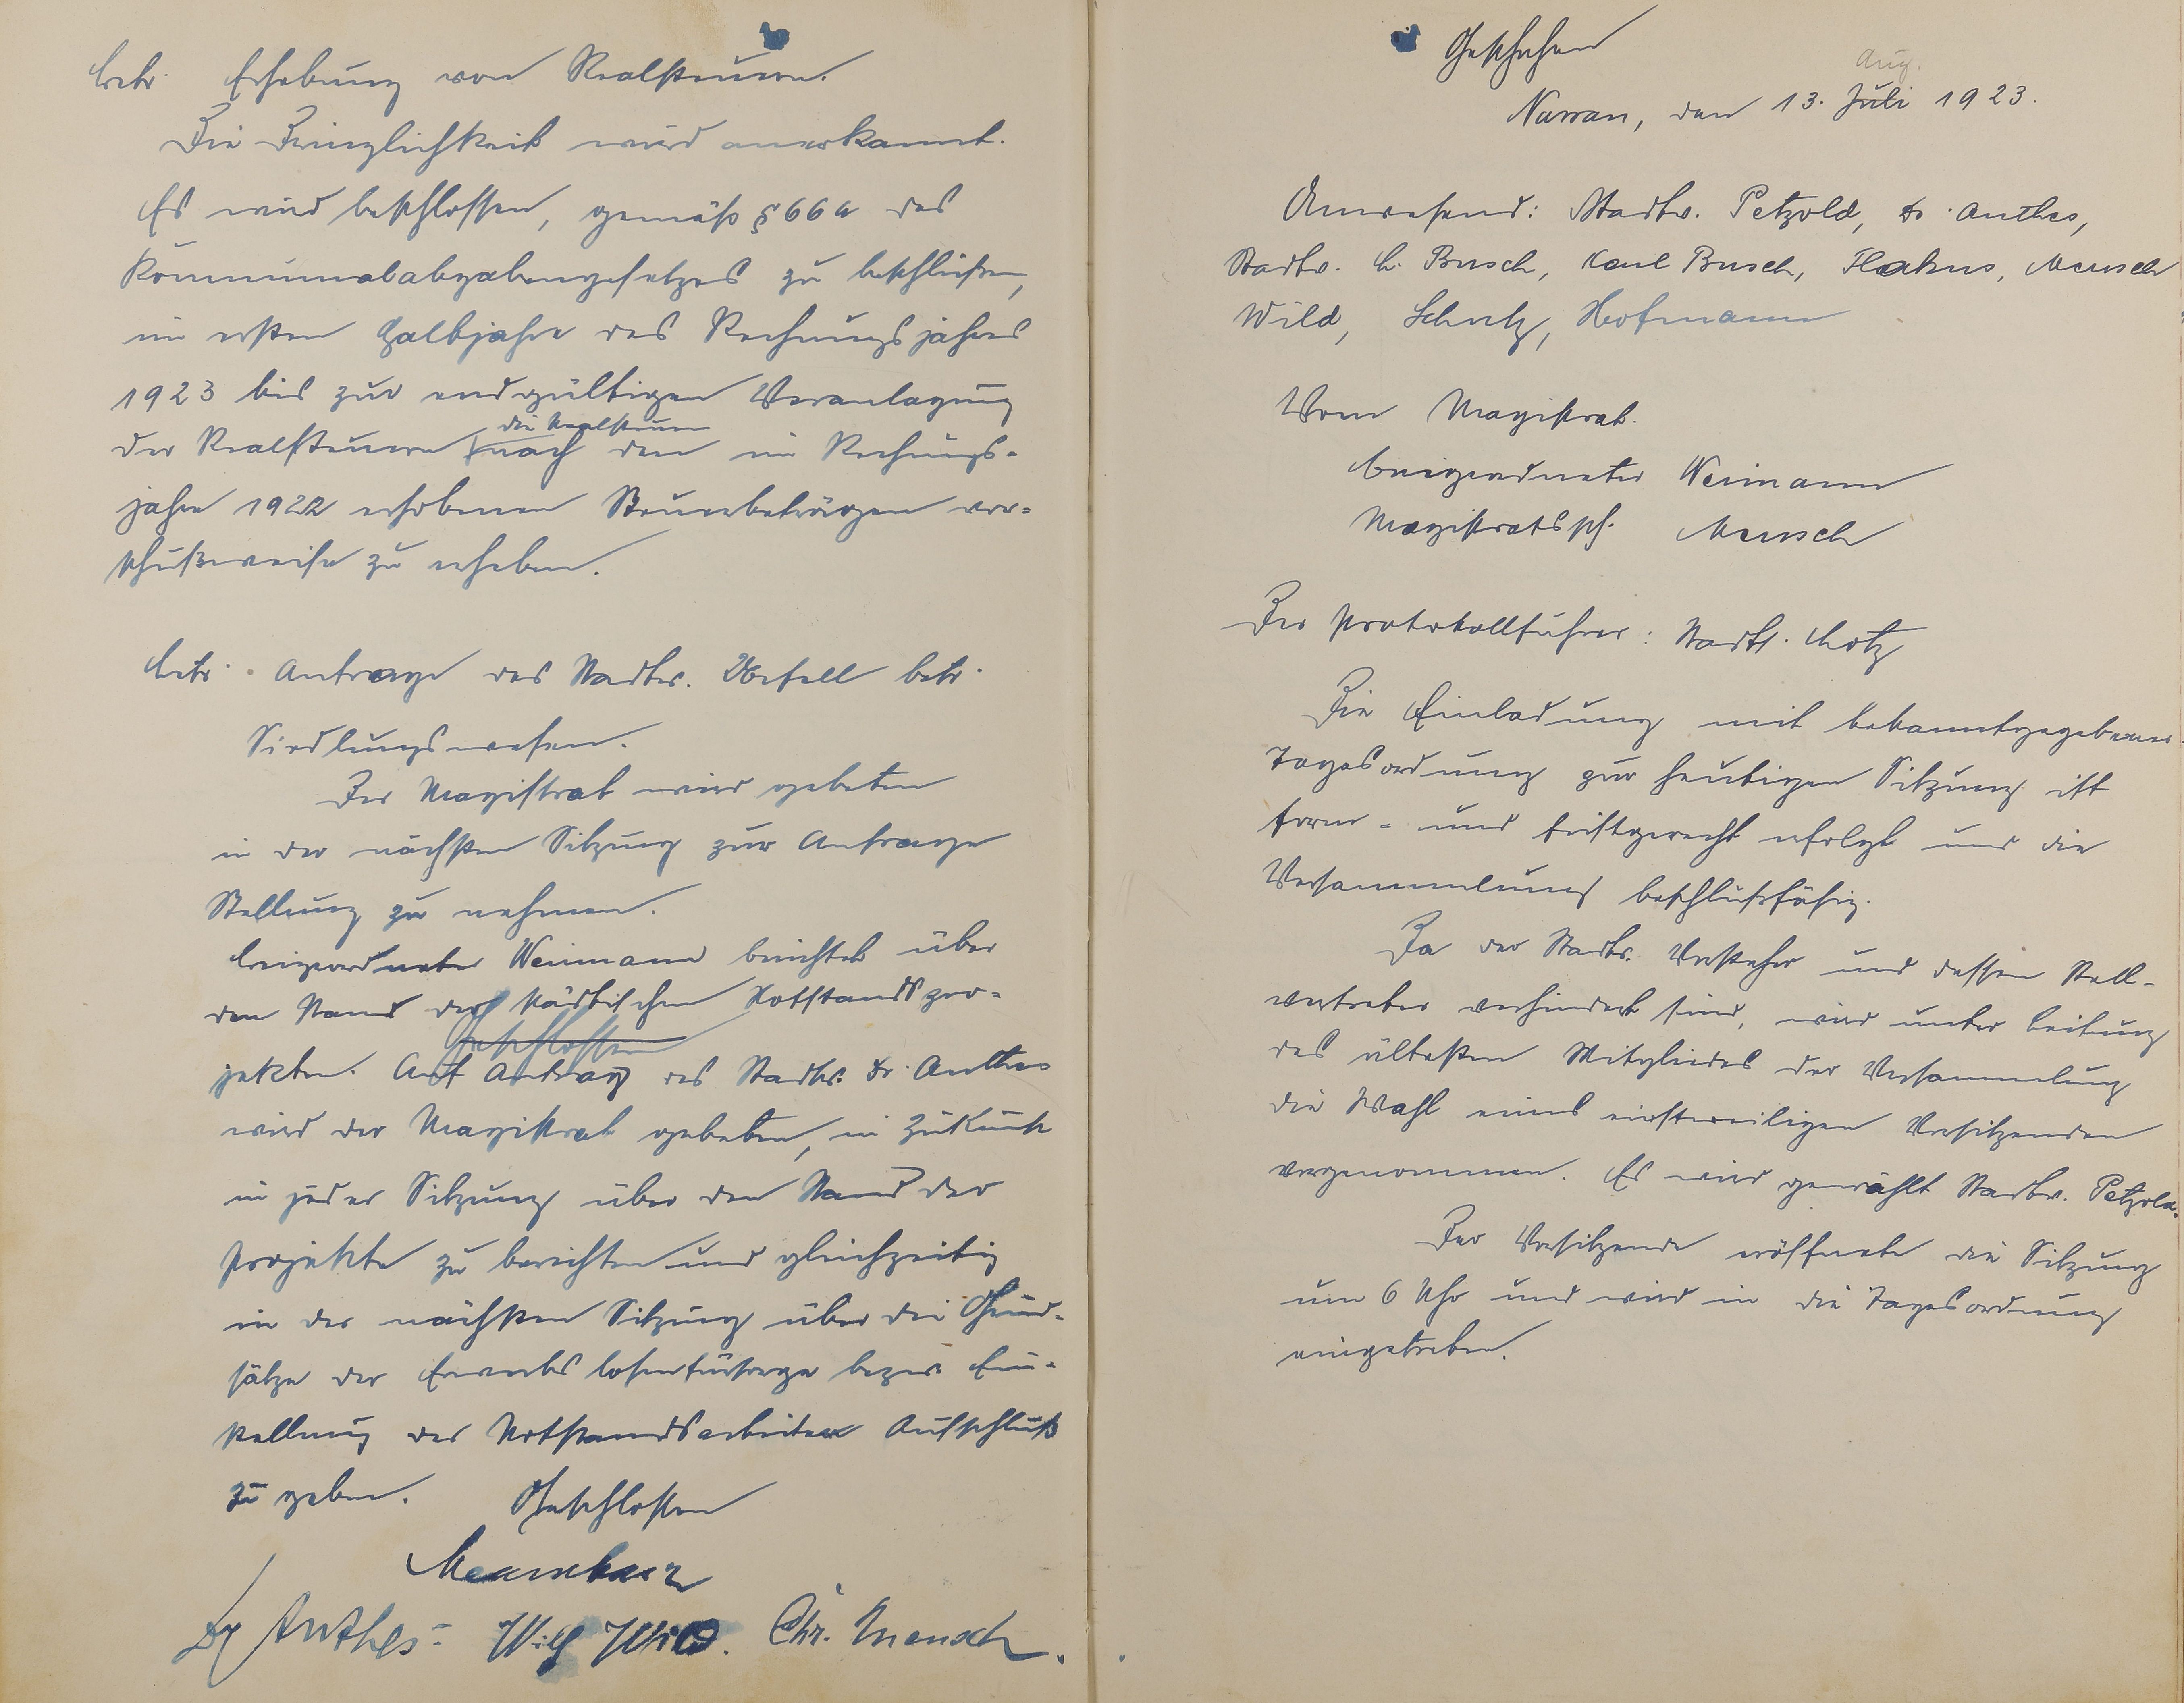 betr. Erhebung von Realsteuern.
Die Dringlichkeit wird anerkannt.
Es wird beschlossen, gemäß § 66a des
Kommunalabgabengesetzes zu beschließen,
im ersten Halbjahre des Rechnungsjahres
1923 bis zur endgültigen Veranlagung
der Realsteuern die Realsteuern nach den im Rechnungs-
jahre 1922 erhobenen Steuerbeträgen vor-
schußweise zu erheben.
betr. Anfrage des Stadtv. betr.
Siedlungswesen.
Der Magistrat wird gebeten
in der nächsten Sitzung zur Anfrage
Stellung zu nehmen.
Beigeordneter Weimann berichtet über
den Stand der städtischen Notstandspro-
Geschlossen
jekten. Auf Antrag des Stadtv. Dr. Anthes
wird der Magistrat gebeten, in Zukunft
in jeder Sitzung über den Stand der
Projekte zu berichten und gleichzeitig
in der nächsten Sitzung über die Grund-
sätze der Erwerbslosenfürsorge bezw. Ein-
stellung der Notstandsarbeiter Aufschluß
zu geben. Geschlossen
Dr Anthes Wilh Wild. Chr. Mensch.
Geschehen
Aug.
Nassau, den 13. Juli 1923.
Anwesend: Stadtv. Petzold, Dr. Anthes,
Stadtv. Busch, Karl Busch, Mensch
Wild, Schulz, Hofmann
Vom Magistrat.
Beigeordneter Weimann
Magistratssch. Mensch
Der Protokollführer: Stadts. Motz
Die Einladung mit bekanntgegebener
Tagesordnung zur heutigen Sitzung ist
form- und fristgerecht erfolgt und die
Versammlung beschlußfähig.
Da der Stadtv. Vorsteher und dessen Stell-
vertreter verhindert sind, wird unter Leitung
des ältesten Mitgliedes der Versammlung
die Wahl eines einstweiligen Vorsitzenden
vorgenommen. Es wird gewählt Stadtv. Petzold.
Der Vorsitzende eröffnete die Sitzung
um 6 Uhr und wird in die Tagesordnung
eingetreten.